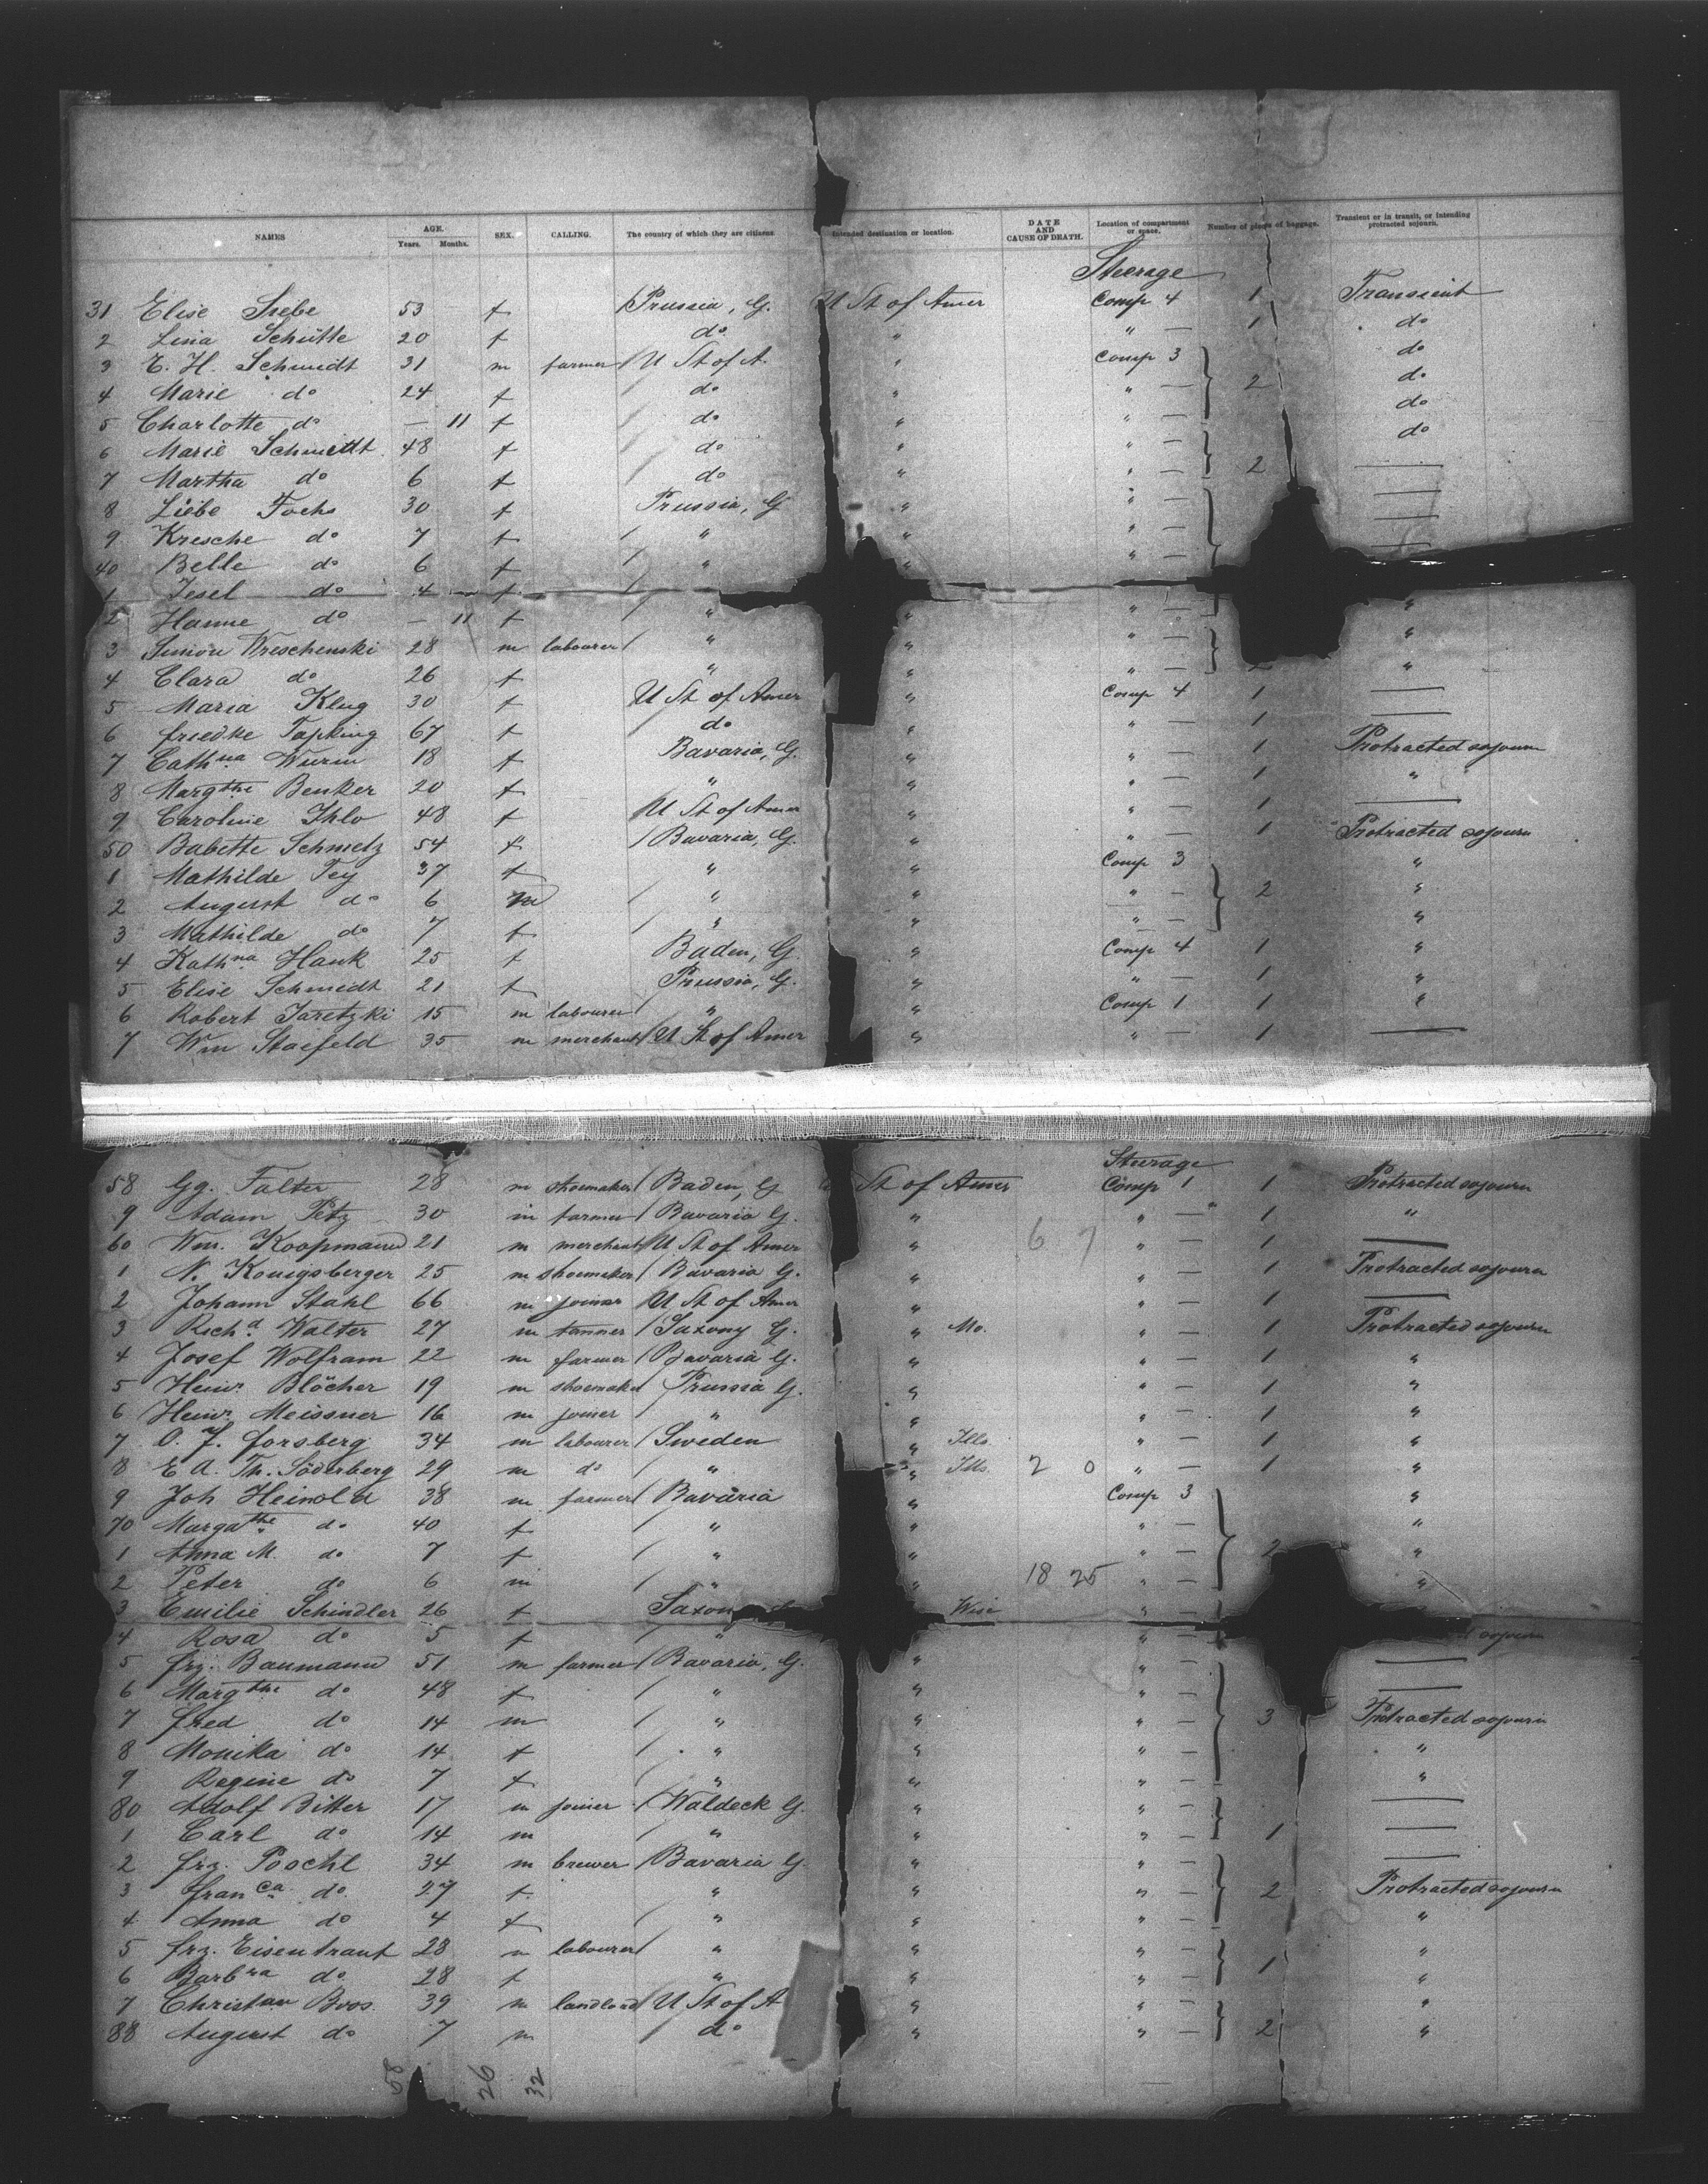 NAMES AGE. Years. Months. SEX. CALLING. The country of which they are citizens Intended destination or location. DATE AND CAUSE OF DEATH. Location of compartment or space. Number of pieces of baggage. Transient or in transit, or intending protracted sojourn.
Steerage
31 Elise 53 f Prussia, G. U St of Amer Comp 4 1 Transient
2 Lina Schütte 20 f do " " — 1 do
3 E. H. Schmidt 31 m farmer U St of A. " Comp 3 do
4 Marie do 24 f do " " — 2 do
5 Charlotte do — 11 f do " " — do
6 Marie Schmidt 48 f do " " — do
7 Martha do 6 f do " " — 2 —
8 Liebe Fochs 30 f Prussia, G " " — —
9 Kresche do 7 f " " " — —
40 Belle do 6 f " " " — —
1 Jesel do 4 f
2 Hanne do — 11 f " " " — "
3 Simon Wreschenski 28 m labourer " " " — "
4 Clara do 26 f " " " — 2 "
5 Maria Klug 30 f U St of Amer " Comp 4 1 —
6 friedke Tapking 67 f do " " — 1 —
7 Cathna Wurm 18 f Bavaria, G. " " — 1 Protracted sojourn
8 Margthe Benker 20 f " " " — 1 "
9 Caroline Ihlo 48 f U St of Amer " " — 1 —
50 Babette Schmelz 54 f Bavaria, G. " " — 1 Protracted sojourn
1 Mathilde Fey 37 f " " Comp 3 "
2 August do 6 m " " " — 2 "
3 Mathilde do 7 f " " " — "
4 Kathna Hauk 25 f Baden, G. " Comp 4 1 "
5 Elise Schmidt 21 f Prussia, G. " " — 1 "
6 Robert Jaretzki 15 m labourer " " Comp 1 1 "
7 Wm Staefeld 35 m merchant U St of Amer " " — 1 —
Steerage
58 Gg. Falter 28 m shoemaker Baden, G U St of Amer Comp 1 1 Protracted sojourn
9 Adam Petz 30 m farmer Bavaria G. " " — 1 "
60 Wm. Koopmann 21 m merchant U St of Amer " 6 7 " — 1 —
1 N. Konigsberger 25 m shoemaker Bavaria G. " " — 1 Protracted sojourn
2 Johann Stahl 66 m joiner U St of Amer " " — 1 —
3 Richd Walter 27 m tanner Saxony G. " Mo. " — 1 Protracted sojourn
4 Josef Wolfram 22 m farmer Bavaria G. " " — 1 "
5 Heinr. Blöcher 19 m shoemaker Prussia G. " " — 1 "
6 Heinr. Meissner 16 m joiner " " " — 1 "
7 O. F. forsberg 34 m labourer Sweden " Ills. " — 1 "
8 E A. Th. Söderberg 29 m do " " Ills. 2 0 " — 1 "
9 Joh Heinold 38 m farmer Bavaria " Comp 3 "
70 Margathe do 40 f " " " — "
1 Anna M. do 7 f " " " — 2 "
2 Peter do 6 m " " 18 25 " — "
3 Emilie Schindler 26 f Saxony Wisc "
4 Rosa do 5 f " " " — sojourn
5 frz. Baumann 51 m farmer Bavaria, G. " " — —
6 Margthe do 48 f " " " — —
7 fred do 14 m " " " — 3 Protracted sojourn
8 Monika do 14 f " " " — "
9 Regine do 7 f " " " — "
80 Adolf Bitter 17 m joiner Waldeck G. " " — —
1 Carl do 14 m " " " — 1 —
2 frz. Poschl 34 m brewer Bavaria G " " — —
3 franca do 27 f " " " — 2 Protracted sojourn
4 Anna do 4 f " " " — "
5 frz. Eisentraut 28 m labourer " " " — "
6 Barbra do 28 f " " " — 1 "
7 Christian Boos. 39 m landlord U St of A " " — "
88 August do 7 m do " " — 2 "
58 26 32